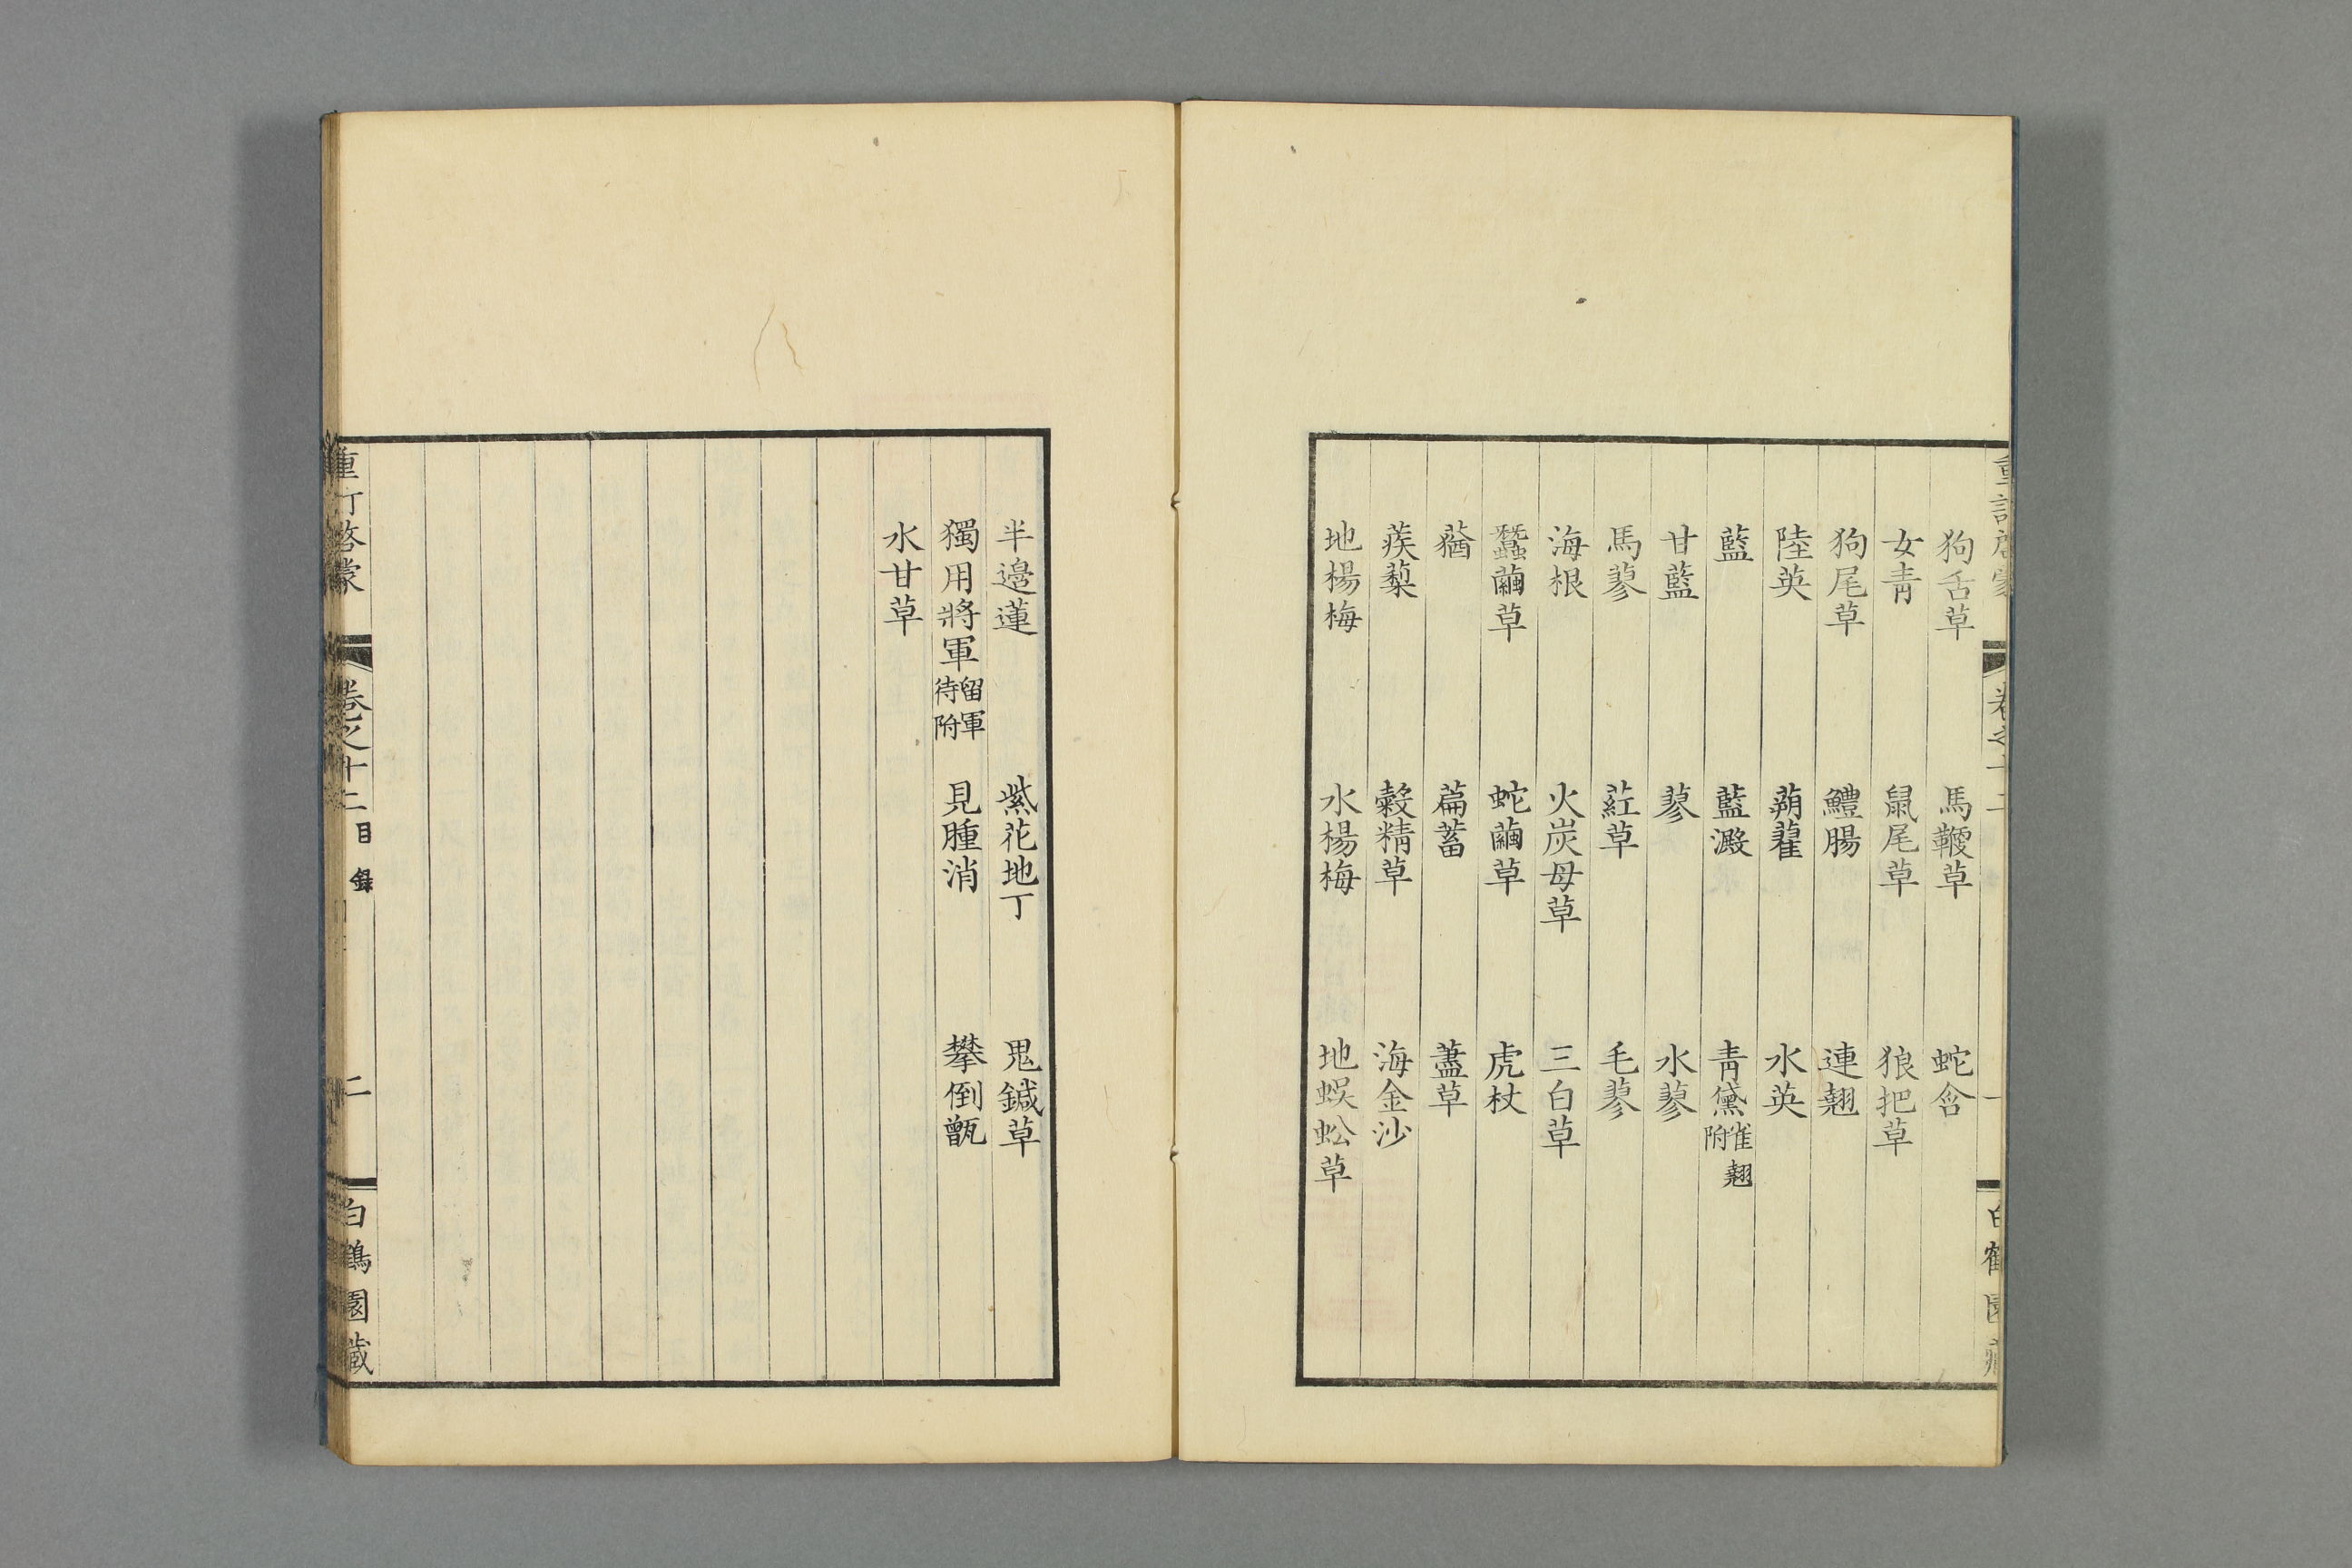 狗舌草 馬鞭草 蛇含
女青 鼠尾草 狼把草
狗尾草 鱧腸 連翹
陸英 蒴藋 水英
藍 藍澱 青黛 雀翹附
甘藍 蓼 水蓼
馬蓼 葒草 毛蓼
海根 火炭母草 三白草
蠶繭草 蛇繭草 虎杖
蕕 萹蓄 藎草
蒺蔾 穀精草 海金沙
地楊梅 水楊梅 地蜈蚣草
半邊蓮 紫花地丁 鬼鍼草
獨用將軍 留軍待附 見腫消 攀倒甑
水甘草
重訂啓蒙 卷之十二 目錄 二 白鶴園藏